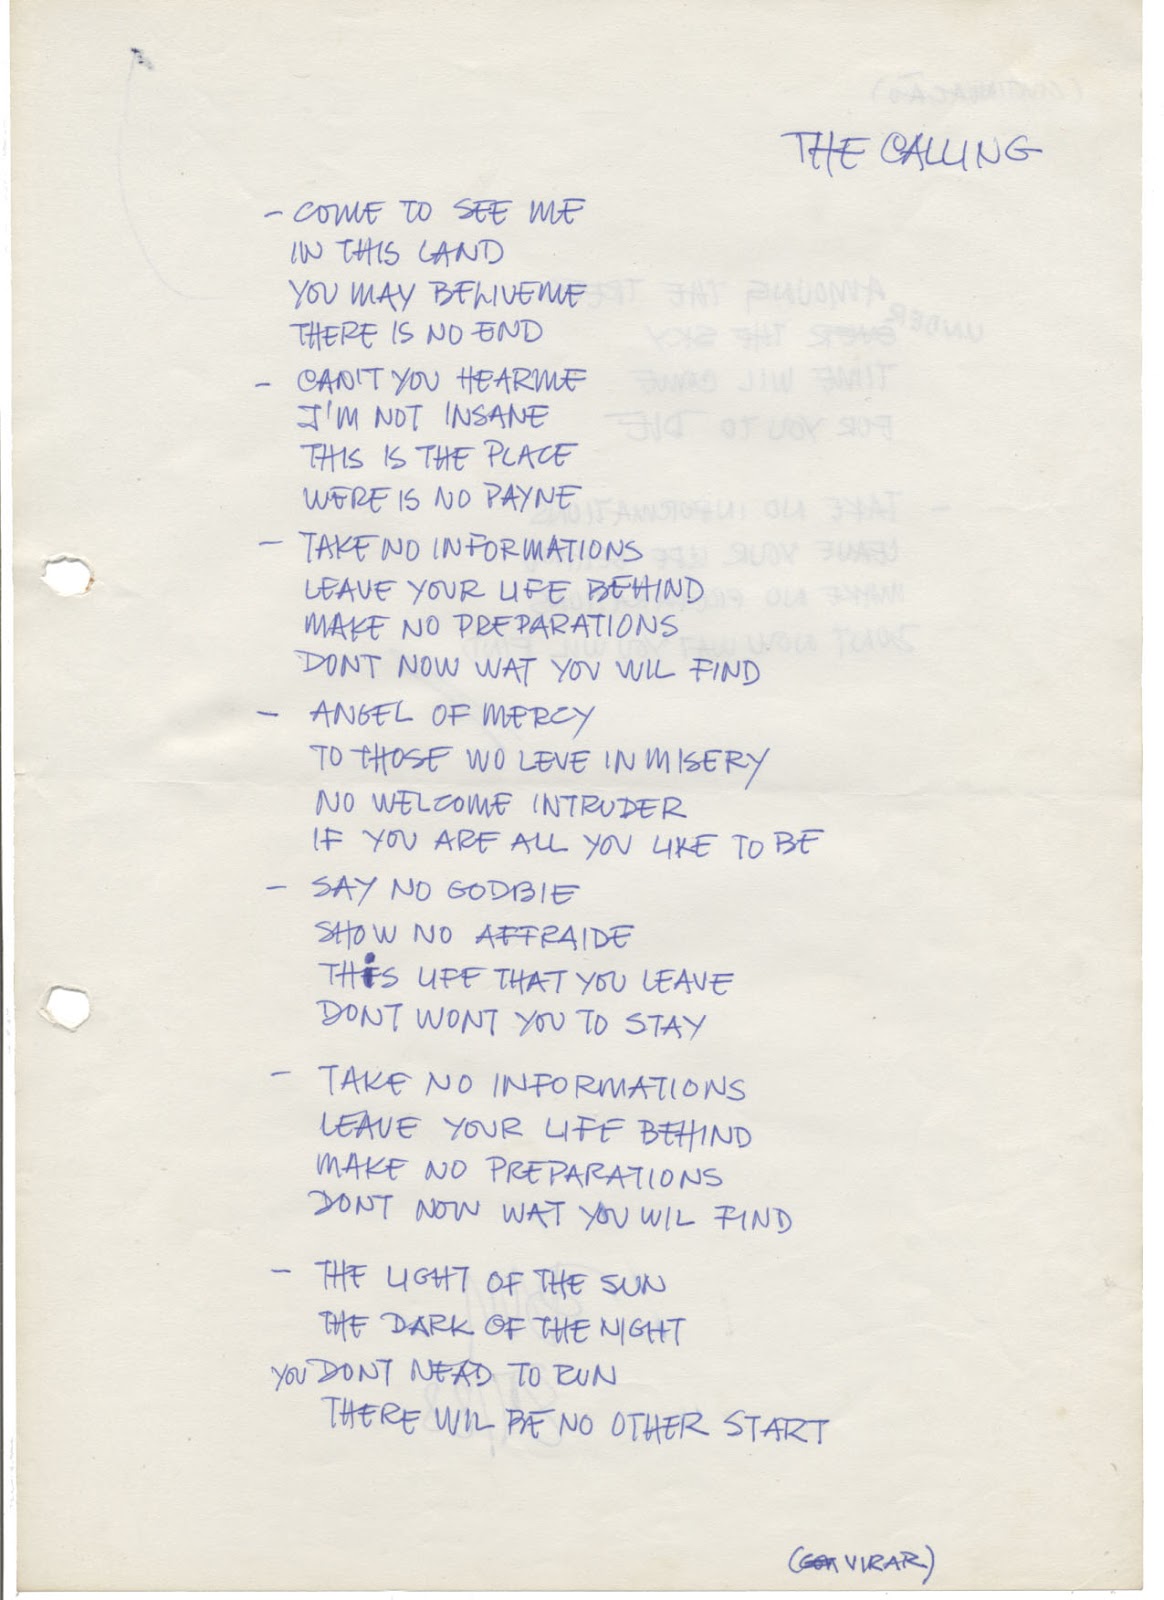 THE CALLING
- COME TO SEE ME
IN THIS LAND
YOU MAY BELIVE ME
THERE IS NO END
- CAN'T YOU HEAR ME
I'M NOT INSANE
THIS IS THE PLACE
WERE IS NO PAYNE
- TAKE NO INFORMATIONS
LEAVE YOUR LIFE BEHIND
MAKE NO PREPARATIONS
DONT NOW WAT YOU WIL FIND
- ANGEL OF MERCY
TO THOSE WO LEVE IN MISERY
NO WELCOME INTRUDER
IF YOU ARE ALL YOU LIKE TO BE
- SAY NO GODBIE
SHOW NO AFFRAIDE
THIS LIFE THAT YOU LEAVE
DONT WONT YOU TO STAY
- TAKE NO INFORMATIONS
LEAVE YOUR LIFE BEHIND
MAKE NO PREPARATIONS
DONT NOW WAT YOU WIL FIND
- THE LIGHT OF THE SUN
THE DARK OF THE NIGHT
YOU DONT NEAD TO RUN
THERE WIL BE NO OTHER START
(VIRAR)